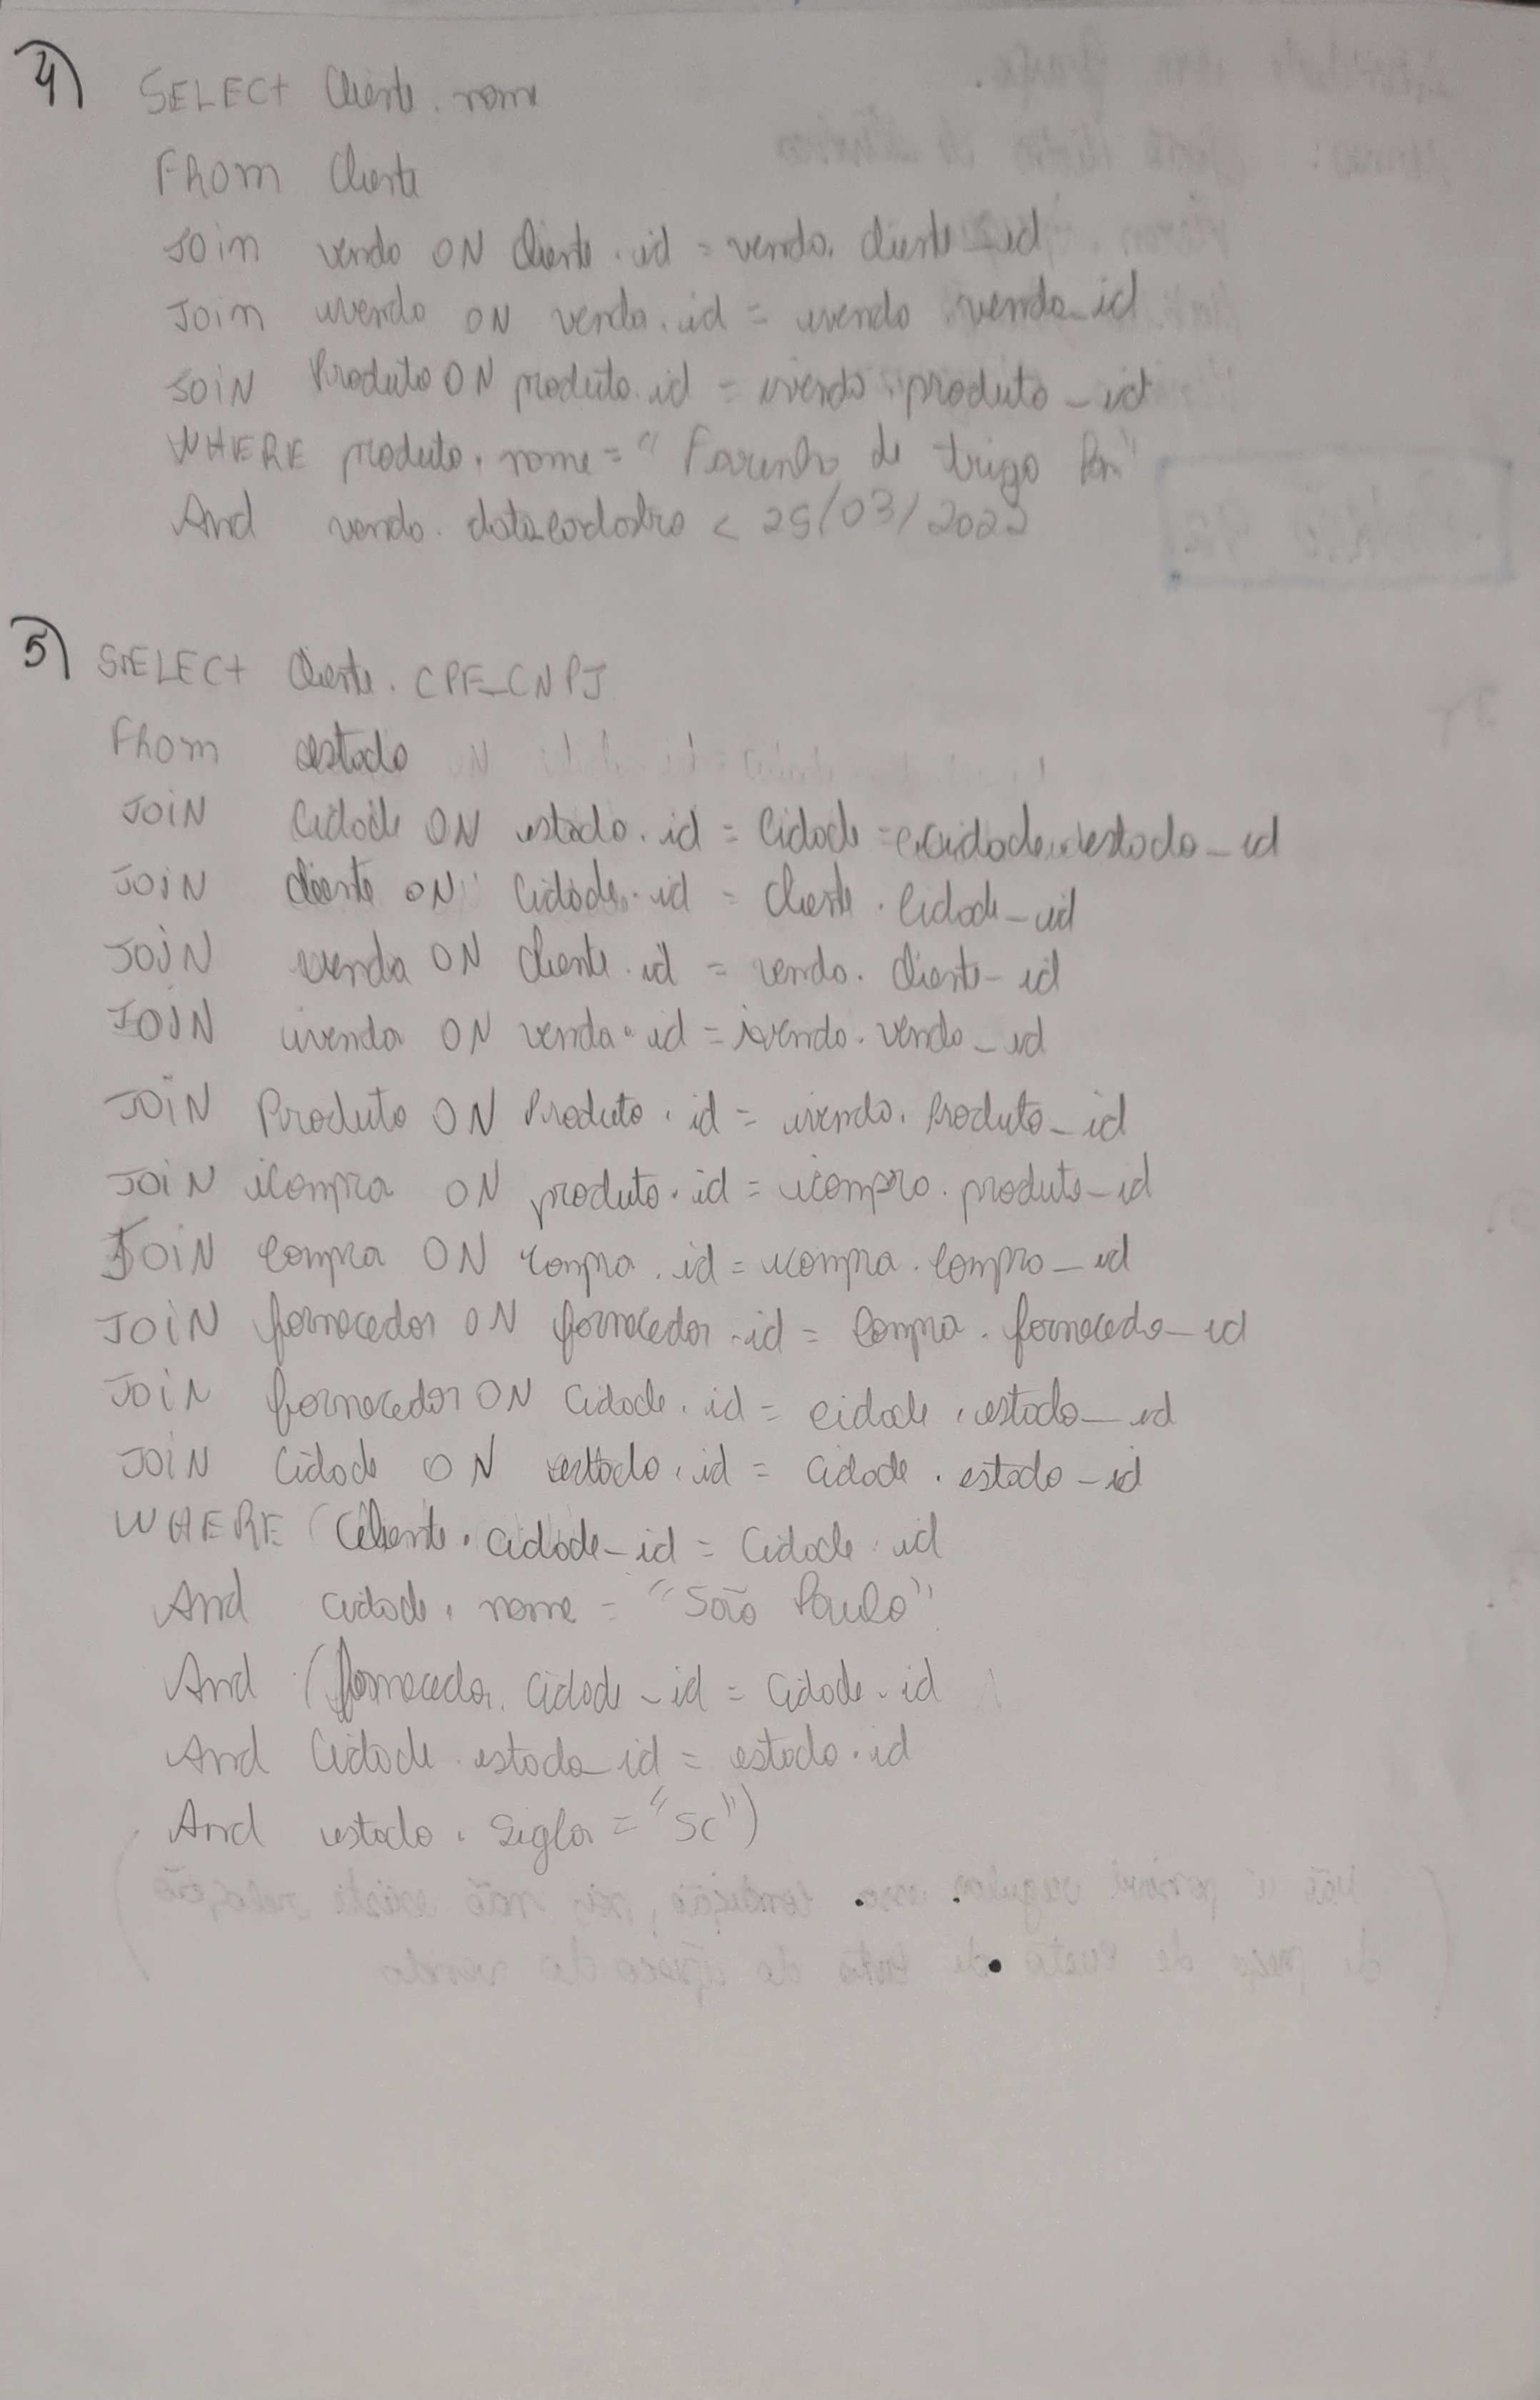 4) SELECT Cliente. nome
FROM Cliente
JOIN venda ON Cliente.id = venda.cliente_id
JOIN ivenda ON venda.id = ivenda venda_id
JOIN Produto ON produto.id = ivenda.produto_id
WHERE produto.nome = "Farinha de trigo
And venda.datacadastro < 25/03/2022
5) SELECT Cliente.CPF_CNPJ
FROM estado
JOIN Cidade ON estado.id = Cidade = estado_id
JOIN cliente ON Cidade.id = cliente.Cidade_id
JOIN venda ON Cliente.id = venda.cliente_id
JOIN ivenda ON venda.id = ivenda.venda_id
JOIN Produto ON Produto.id = ivenda.Produto_id
JOIN icompra ON produto.id = icompra.produto_id
JOIN compra ON compra.id = icompra.compra_id
JOIN fornecedor ON fornecedor.id = compra.fornecedo_id
JOIN fornecedor ON Cidade.id = cidade.estado_id
JOIN Cidade ON estado.id = cidade.estado_id
WHERE (Cliente.cidade_id = Cidade.id
And cidade.nome = "São Paulo"
And (fornecedor.cidade_id = cidade.id
And Cidade.estado_id = estado.id
And estado.sigla = "SC")